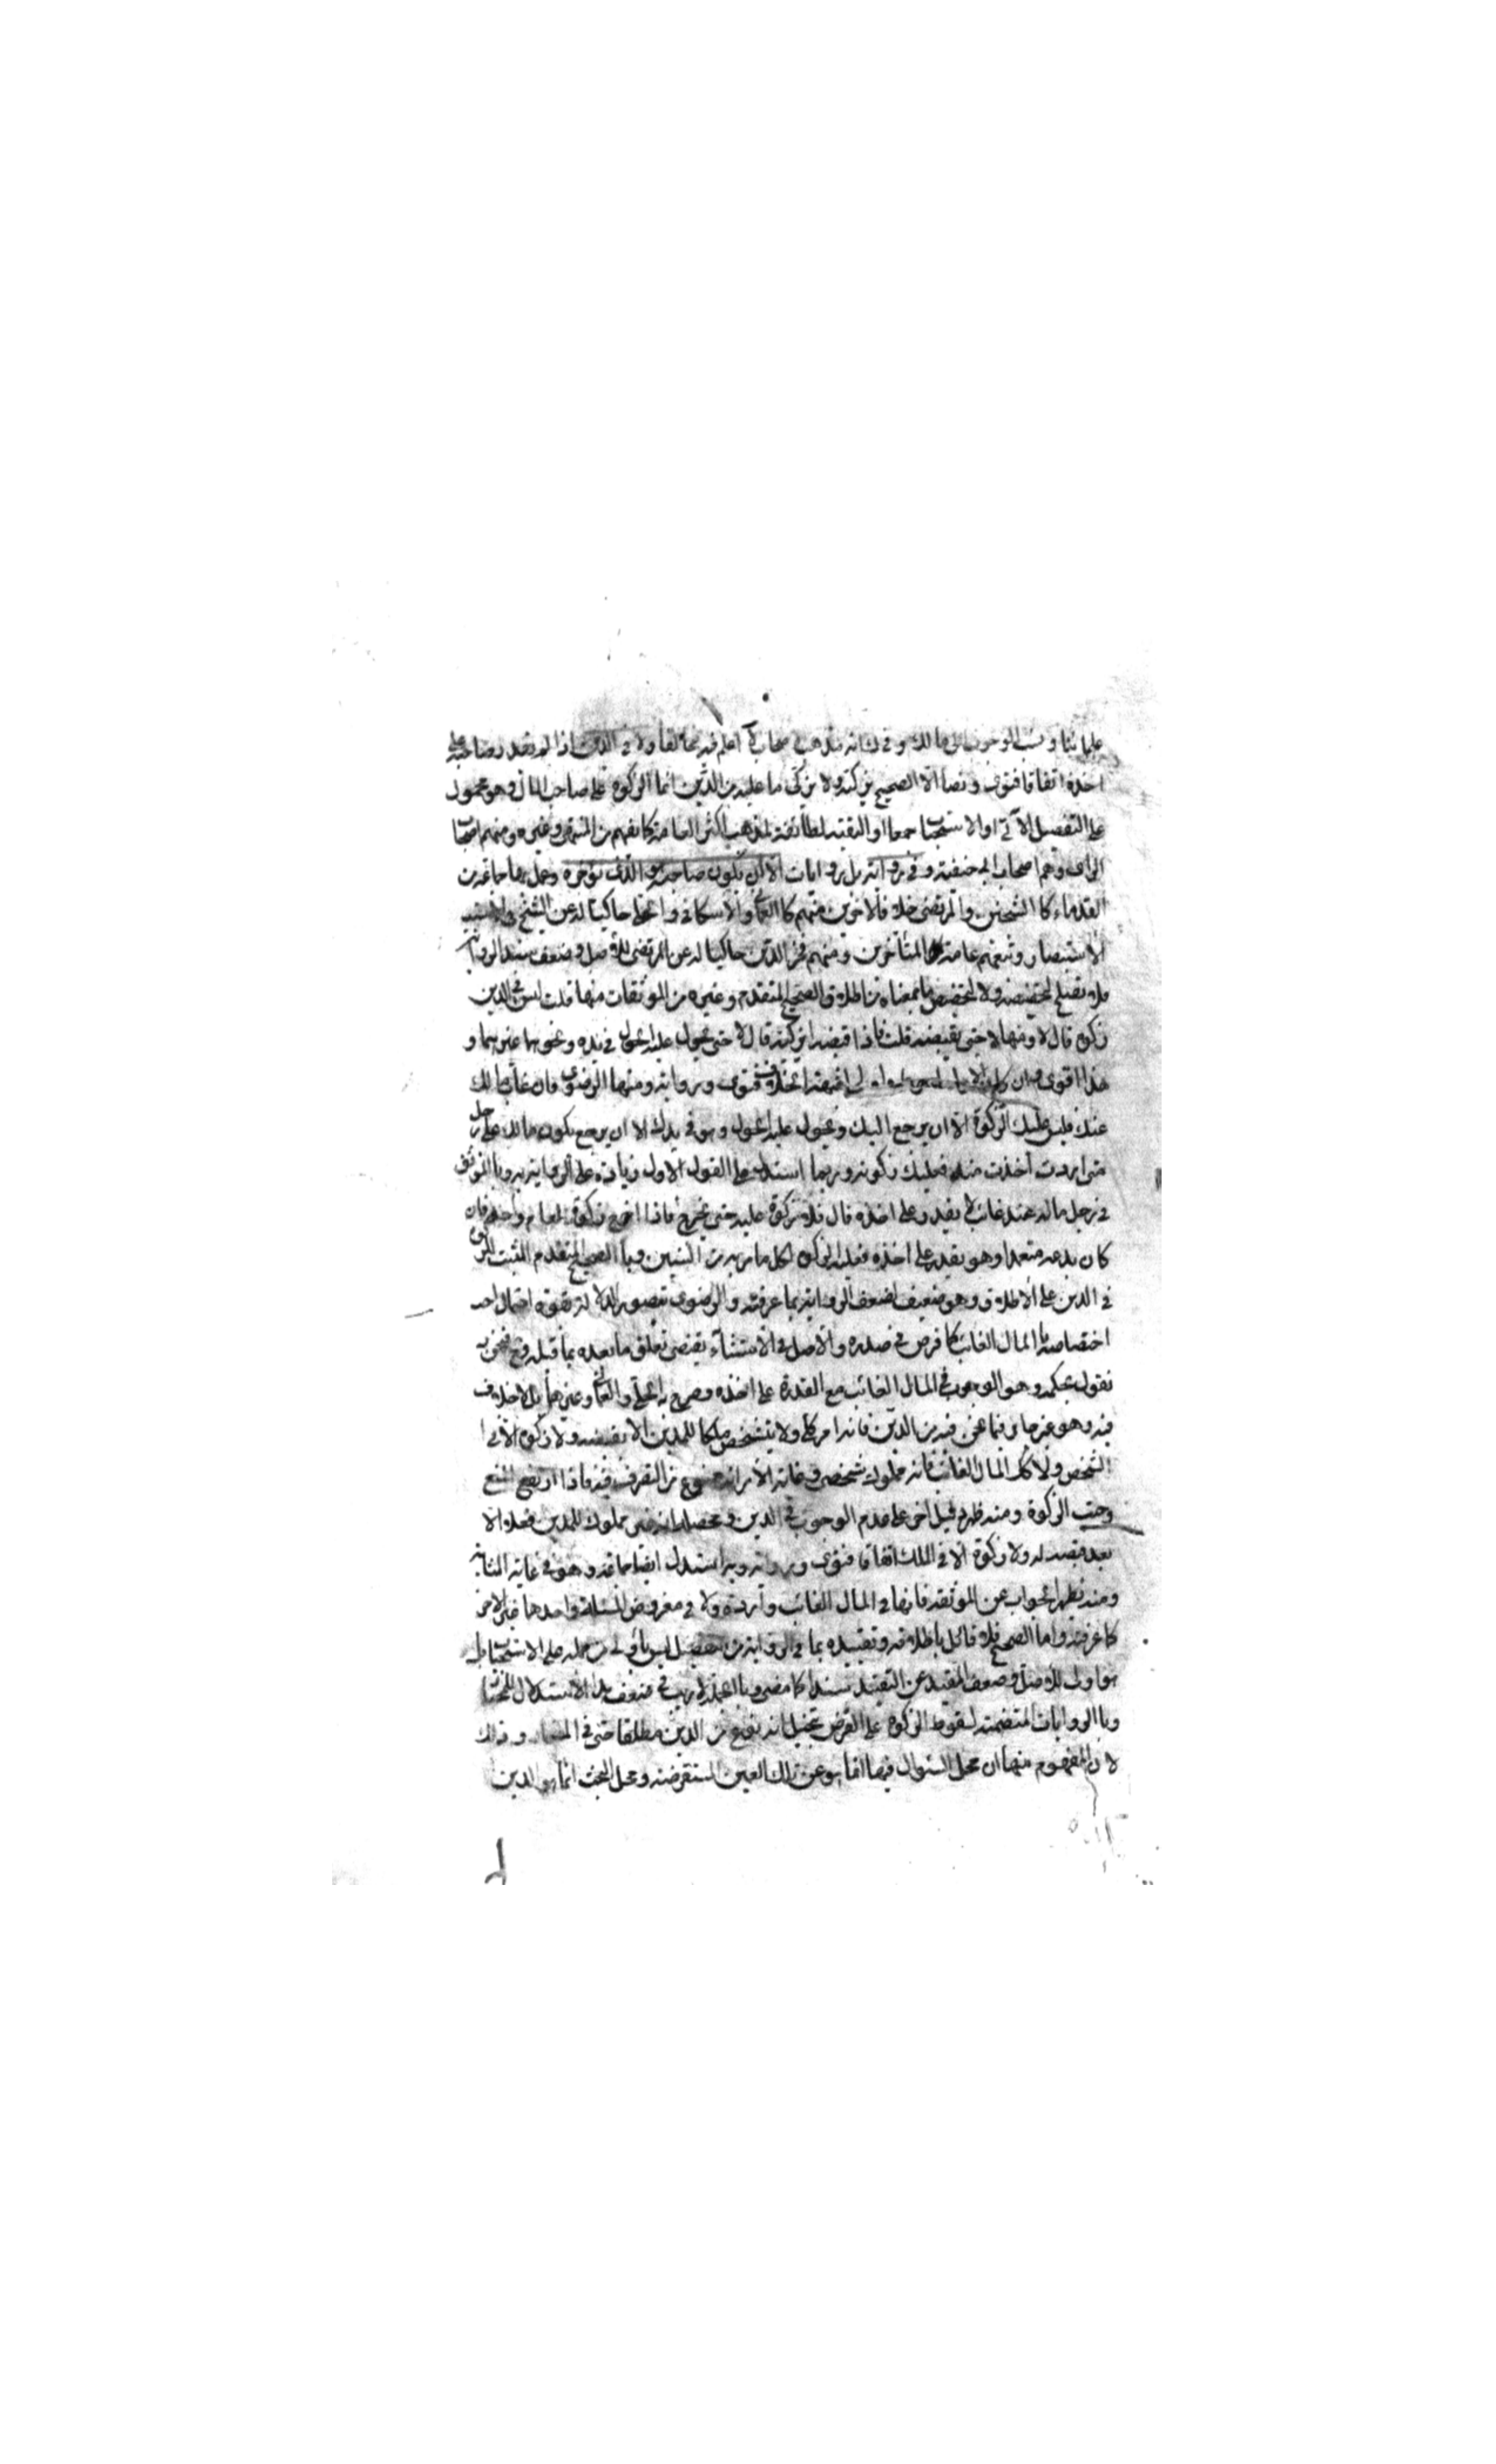 علمائنا ونسب الوجوب الى مالك وفي انه مذهب اصحابنا لا اعلم فيه مخالفا ولا في الدين اذا لم يقدر صاحبه على
اخذه اتفاقا فتوى ونصا الا الصحيح يزكيه ولا يزكى ما عليه من الدين انما الزكوة على صاحب المال وهو محمول
على التفصيل الآتي او الاستحباب جمعا او التقية لطائفة لمذهب اكثر العامة كما يفهم من المنتهى وغيره ومنهم اصحاب
الراى وهم اصحاب ابي حنيفة وفي رواية بل روايات الا ان يكون صاحبه هو الذى يؤخره وعمل بها جماعة من
القدماء كالشيخين والمرتضى خلافا لآخرين منهم كالعماني والاسكافي والحلي حاكيا له عن الشيخ في
الاستبصار وتبعهم عامة المتأخرين ومنهم فخر الدين حاكيا له عن المرتضى للاصل وضعف سند الرواية
فلا تصلح لتخصيصه ولا لتخصيص ما بمعناه من اطلاق الصحيح المتقدم وغيره من الموثقات منها قلت ليس في الدين
زكوة قال لا ومنها لا حتى يقبضه قلت فاذا قبضه ايزكيه قال لا حتى يحول عليه الحول في يده ونحوهما غيرهما و
هذا اقوى وان كان الاول فتوى ورواية ومنها الرضوى فان غاب مالك
عنك فليس عليك الزكوة الا ان يرجع اليك ويحول عليه الحول وهو في يدك الا ان يكون مالك على رجل
متى اردت اخذت منه فعليك زكوته وربما استدل على القول الاول زيادة على الرواية به وبالموثق
في رجل ماله عنه غائب لا يقدر على اخذه قال فلا زكوة عليه حتى يخرج فاذا اخرج زكوة لعام واحد فان
كان يدعه متعمدا وهو يقدر على اخذه فعليه الزكوة لكل ما مر به من السنين وبالصحيح المتقدم المثبت للزكوة
في الدين على الاطلاق وهو ضعيف لضعف الرواية بما عرفته والرضوى بقصور الدلالة لقوة احتمال
اختصاصه بالمال الغائب كما فرض في صدره والاصل في الاستثناء يقتضى تعلق ما بعده بما قبله ونحن
نقول بحكمه وهو الوجوب في المال الغائب مع القدرة على اخذه وصرح به الحلي والعماني وغيرهما بلا خلاف
فيه وهو غير جار فيما نحن فيه من الدين فانه امر كلي ولا يتشخص ملكا للمدين الا بقبضه ولا زكوة الا في
الشخص ولا كك المال الغائب فانه مملوك شخصى وغاية الامر انه ممنوع من التصرف فيه فاذا ارتفع المنع
وجبت الزكوة ومنه ظهر دليل اخر على عدم الوجوب في الدين ومحصله انه غير مملوك للمدين فعلا الا
بعد قبضه له ولا زكوة الا في الملك اتفاقا فتوى ورواية وبه استدل ايضا جماعة وهو في غاية المتانة
ومنه يظهر الجواب عن الموثقة فانها في المال الغائب واردة ولا في مفروض المسئلة واحدهما غير الاخر
كما عرفته واما الصحيح فلا قائل باطلاقه وتقييده بما في الرواية من التفصيل ليس باولى من حمله على الاستحباب بل
هو اولى للاصل وضعف المقيد عن التقييد سندا كما مضى وبالجملة لا ريب في ضعف هذا الاستدلال
وبالروايات المتضمنة لسقوط الزكوة على القرض بتخيل انه نوع من الدين مطلقا حتى في وذلك
لان المفهوم منها ان محل السؤال فيها انما هو عن زكوة العين المستقرضة ومحل البحث انما هو الدين